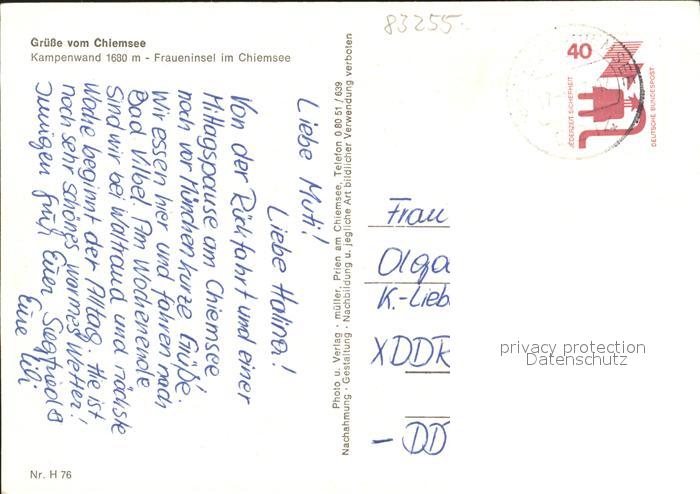 83255
Grüße vom Chiemsee
Kampenwand 1680 m - Fraueninsel im Chiemsee
Liebe Muti!
Liebe Halina!
Von der Rückfahrt und einer
Mittagspause am Chiemsee
noch vor München kurze Grüße.
Wir essen hier und fahren nach
Bad Vilbel. Am Wochenende
sind wir bei Waltraud und nächste
Woche beginnt der Alltag. Hie ist
noch sehr schönes warmes Wetter!
Innigen Gruß Euer Siegfried &
Eure
Nr. H 76
Photo u. Verlag · müller, Prien am Chiemsee, Telefon 0 80 51 / 639
Nachahmung · Gestaltung · Nachbildung u. jegliche Art bildlicher Verwendung verboten
40
JEDERZEIT SICHERHEIT
DEUTSCHE BUNDESPOST
Frau
Olga
K.-Lieb
XDDR
- DD
privacy protection
Datenschutz